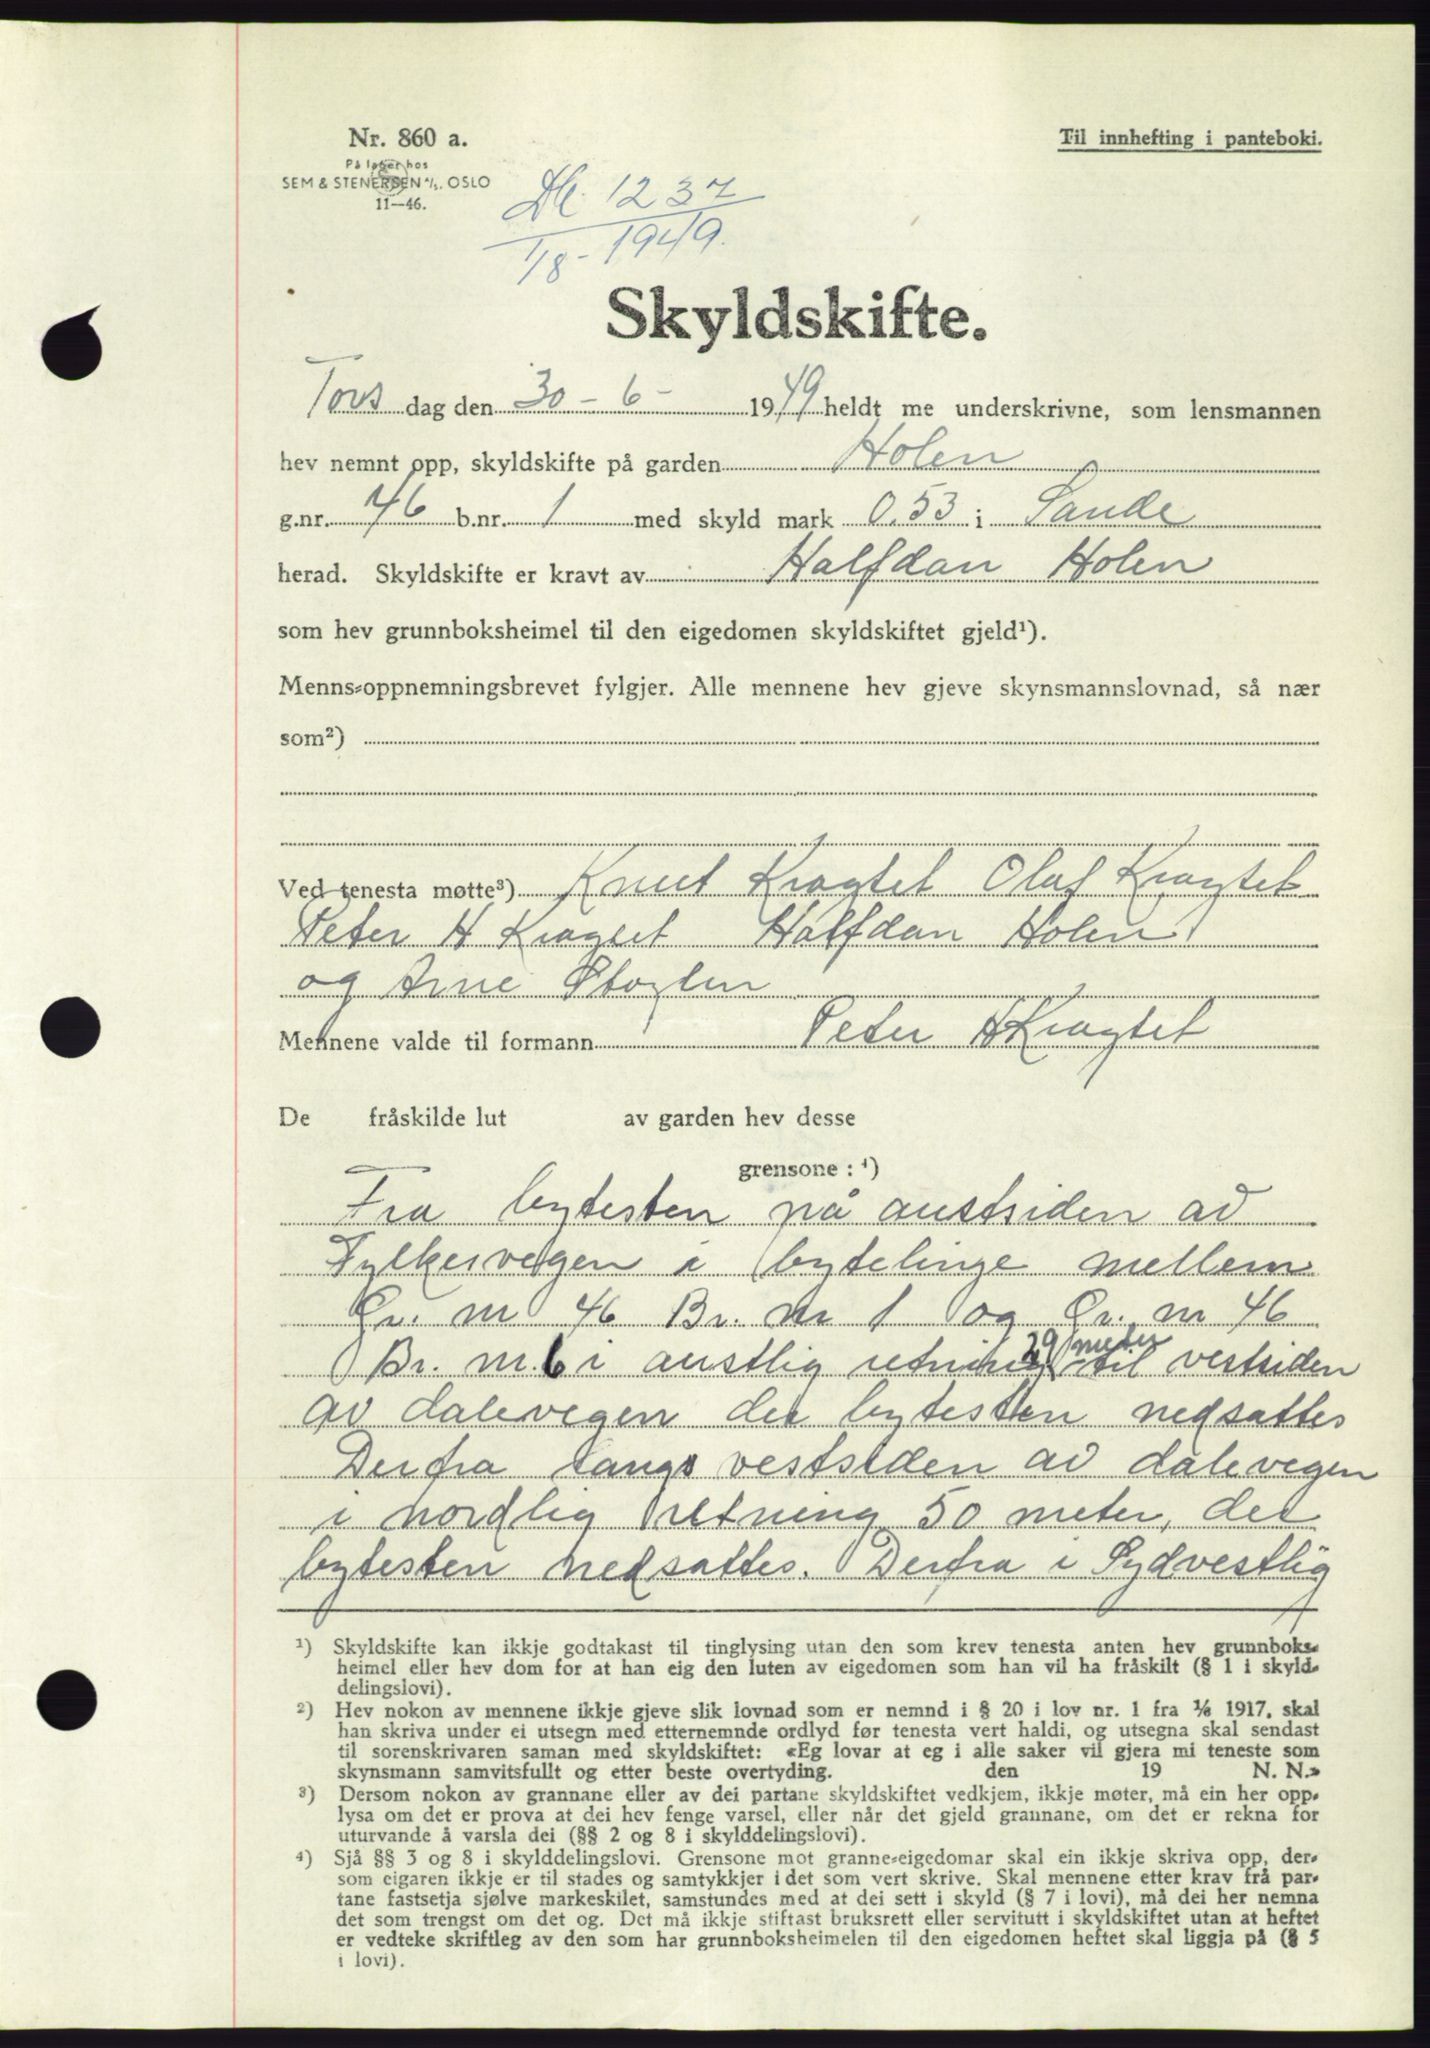 Nr. 860 a.
Til innhefting i panteboki.
På lager hos
SEM & STENERSEN A/S. OSLO
11—46.
Db. 1237
1/8-1949.
Skyldskifte.
Tors dag den 30-6- 1949 heldt me underskrivne, som lensmannen
hev nemnt opp, skyldskifte på garden Holen
g.nr. 46 b.nr. 1 med skyld mark 0.53 i Sande
herad. Skyldskifte er kravt av Halfdan Holen
som hev grunnboksheimel til den eigedomen skyldskiftet gjeld¹).
Menns-oppnemningsbrevet fylgjer. Alle mennene hev gjeve skynsmannslovnad, så nær
som²)
Ved tenesta møtte³) Knut Kragset Olaf Kragset
Peter H Kragset Halfdan Holen
og Arne
Mennene valde til formann Peter H Kragset
De fråskilde lut av garden hev desse
grensone : ⁴)
Fra bytesten på austsiden av
Fylkesvegen i bytelinje mellem
Gr. nr 46 Br. nr 1 og Gr. nr 46
Br. nr. 6 i austlig retning 29 meter til vestsiden
av dalevegen der bytesten nedsattes
Derfra langs vestsiden av dalevegen
i nordlig retning 50 meter, der
bytesten nedsattes. Derfra i Sydvestlig
¹) Skyldskifte kan ikkje godtakast til tinglysing utan den som krev tenesta anten hev grunnboks-
heimel eller hev dom for at han eig den luten av eigedomen som han vil ha fråskilt (§ 1 i skyld-
delingslovi).
²) Hev nokon av mennene ikkje gjeve slik lovnad som er nemnd i § 20 i lov nr. 1 fra ⅙ 1917, skal
han skriva under ei utsegn med etternemnde ordlyd før tenesta vert haldi, og utsegna skal sendast
til sorenskrivaren saman med skyldskiftet: «Eg lovar at eg i alle saker vil gjera mi teneste som
skynsmann samvitsfullt og etter beste overtyding. den 19 N. N.»
³) Dersom nokon av grannane eller av dei partane skyldskiftet vedkjem, ikkje møter, må ein her opp-
lysa om det er prova at dei hev fenge varsel, eller når det gjeld grannane, om det er rekna for
uturvande å varsla dei (§§ 2 og 8 i skylddelingslovi).
⁴) Sjå §§ 3 og 8 i skylddelingslovi. Grensone mot granne-eigedomar skal ein ikkje skriva opp, der-
som eigaren ikkje er til stades og samtykkjer i det som vert skrive. Skal mennene etter krav frå par-
tane fastsetja sjølve markeskilet, samstundes med at dei sett i skyld (§ 7 i lovi), må dei her nemna
det som trengst om det og. Det må ikkje stiftast bruksrett eller servitutt i skyldskiftet utan at heftet
er vedteke skriftleg av den som har grunnboksheimelen til den eigedomen heftet skal liggja på (§ 5
i lovi).